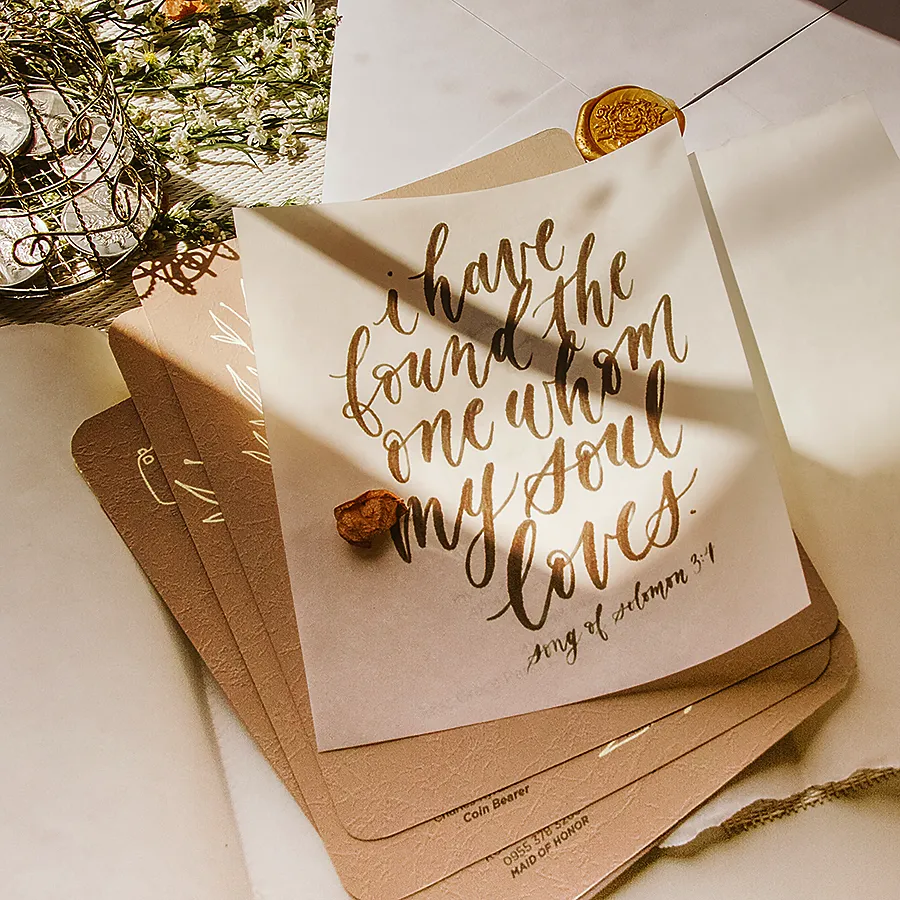 i have
found the
one whom
my soul
loves.
song of solomon 3:4
Coin Bearer
0955 378
MAID OF HONOR